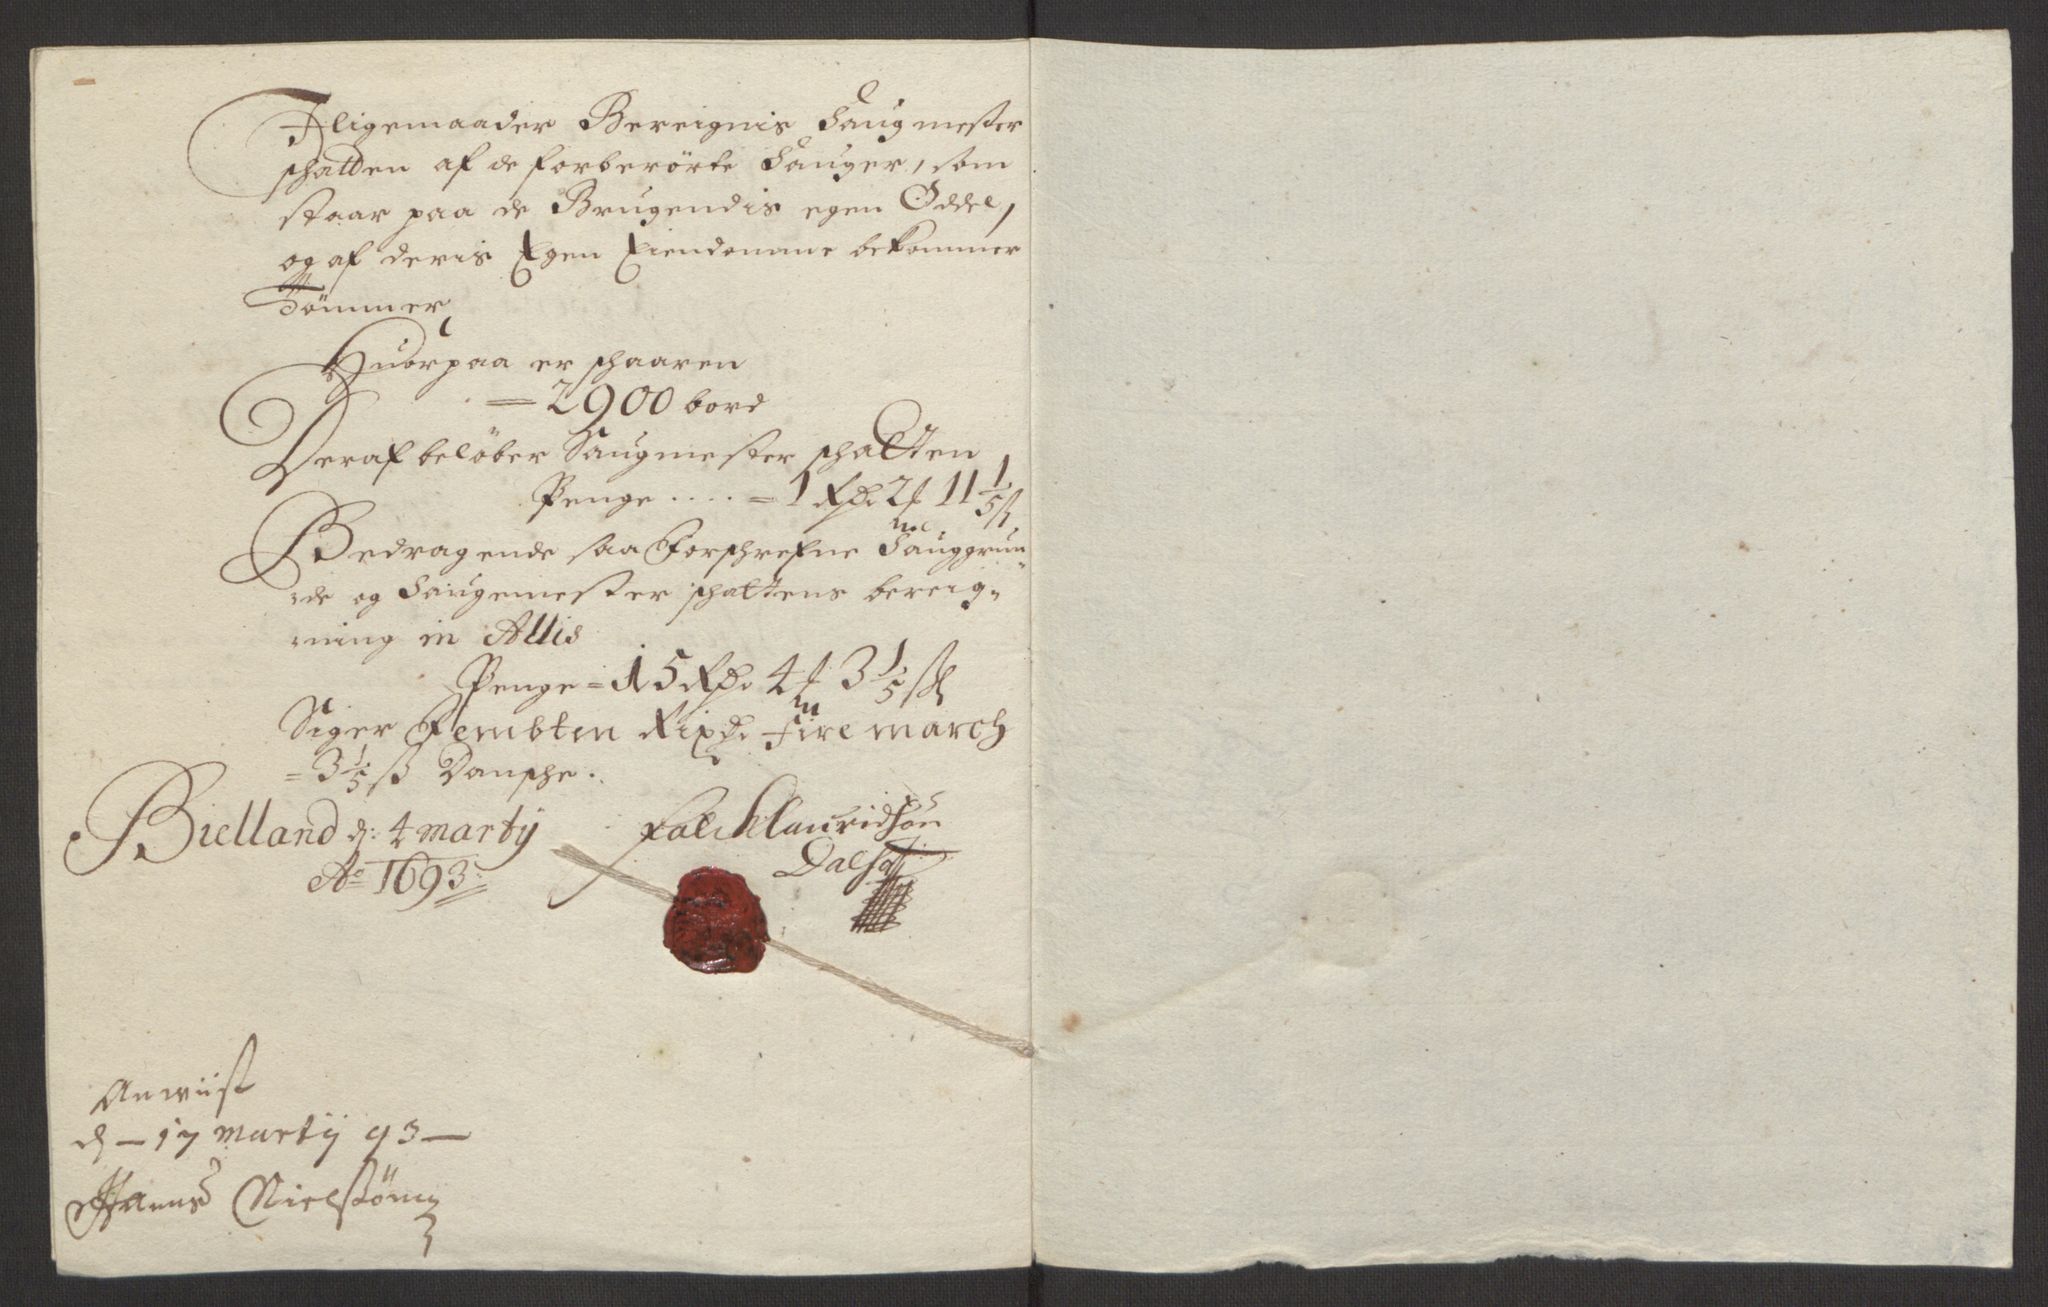 Jligemaader Bereignis Saugmester
schatten af de forberörte Sauger, som
staar paa de Brugendis egen Oddel,
og af deris Egen Eiendomme bekommer
Tömmer
Huorpaa er schaaren
= 2900 bord
Deraf belöber Saugmester schatten
Penge .... = 1 Rdr 2 11 1/5 ß
Bedragende saa Forschrefne Sauggrun
nde og Saugemester schattens bereig„
ning in Allis
Penge = 15 Rdr 4 3 1/5 ß
Siger Fembten Rixdr fire march
= 3 1/5 ß Dansche.
Bielland d: 4 martij
Ao 1693
Falch Lauridsön
Anwiist
d — 17 Martij 93 —
Hanns Nielsön